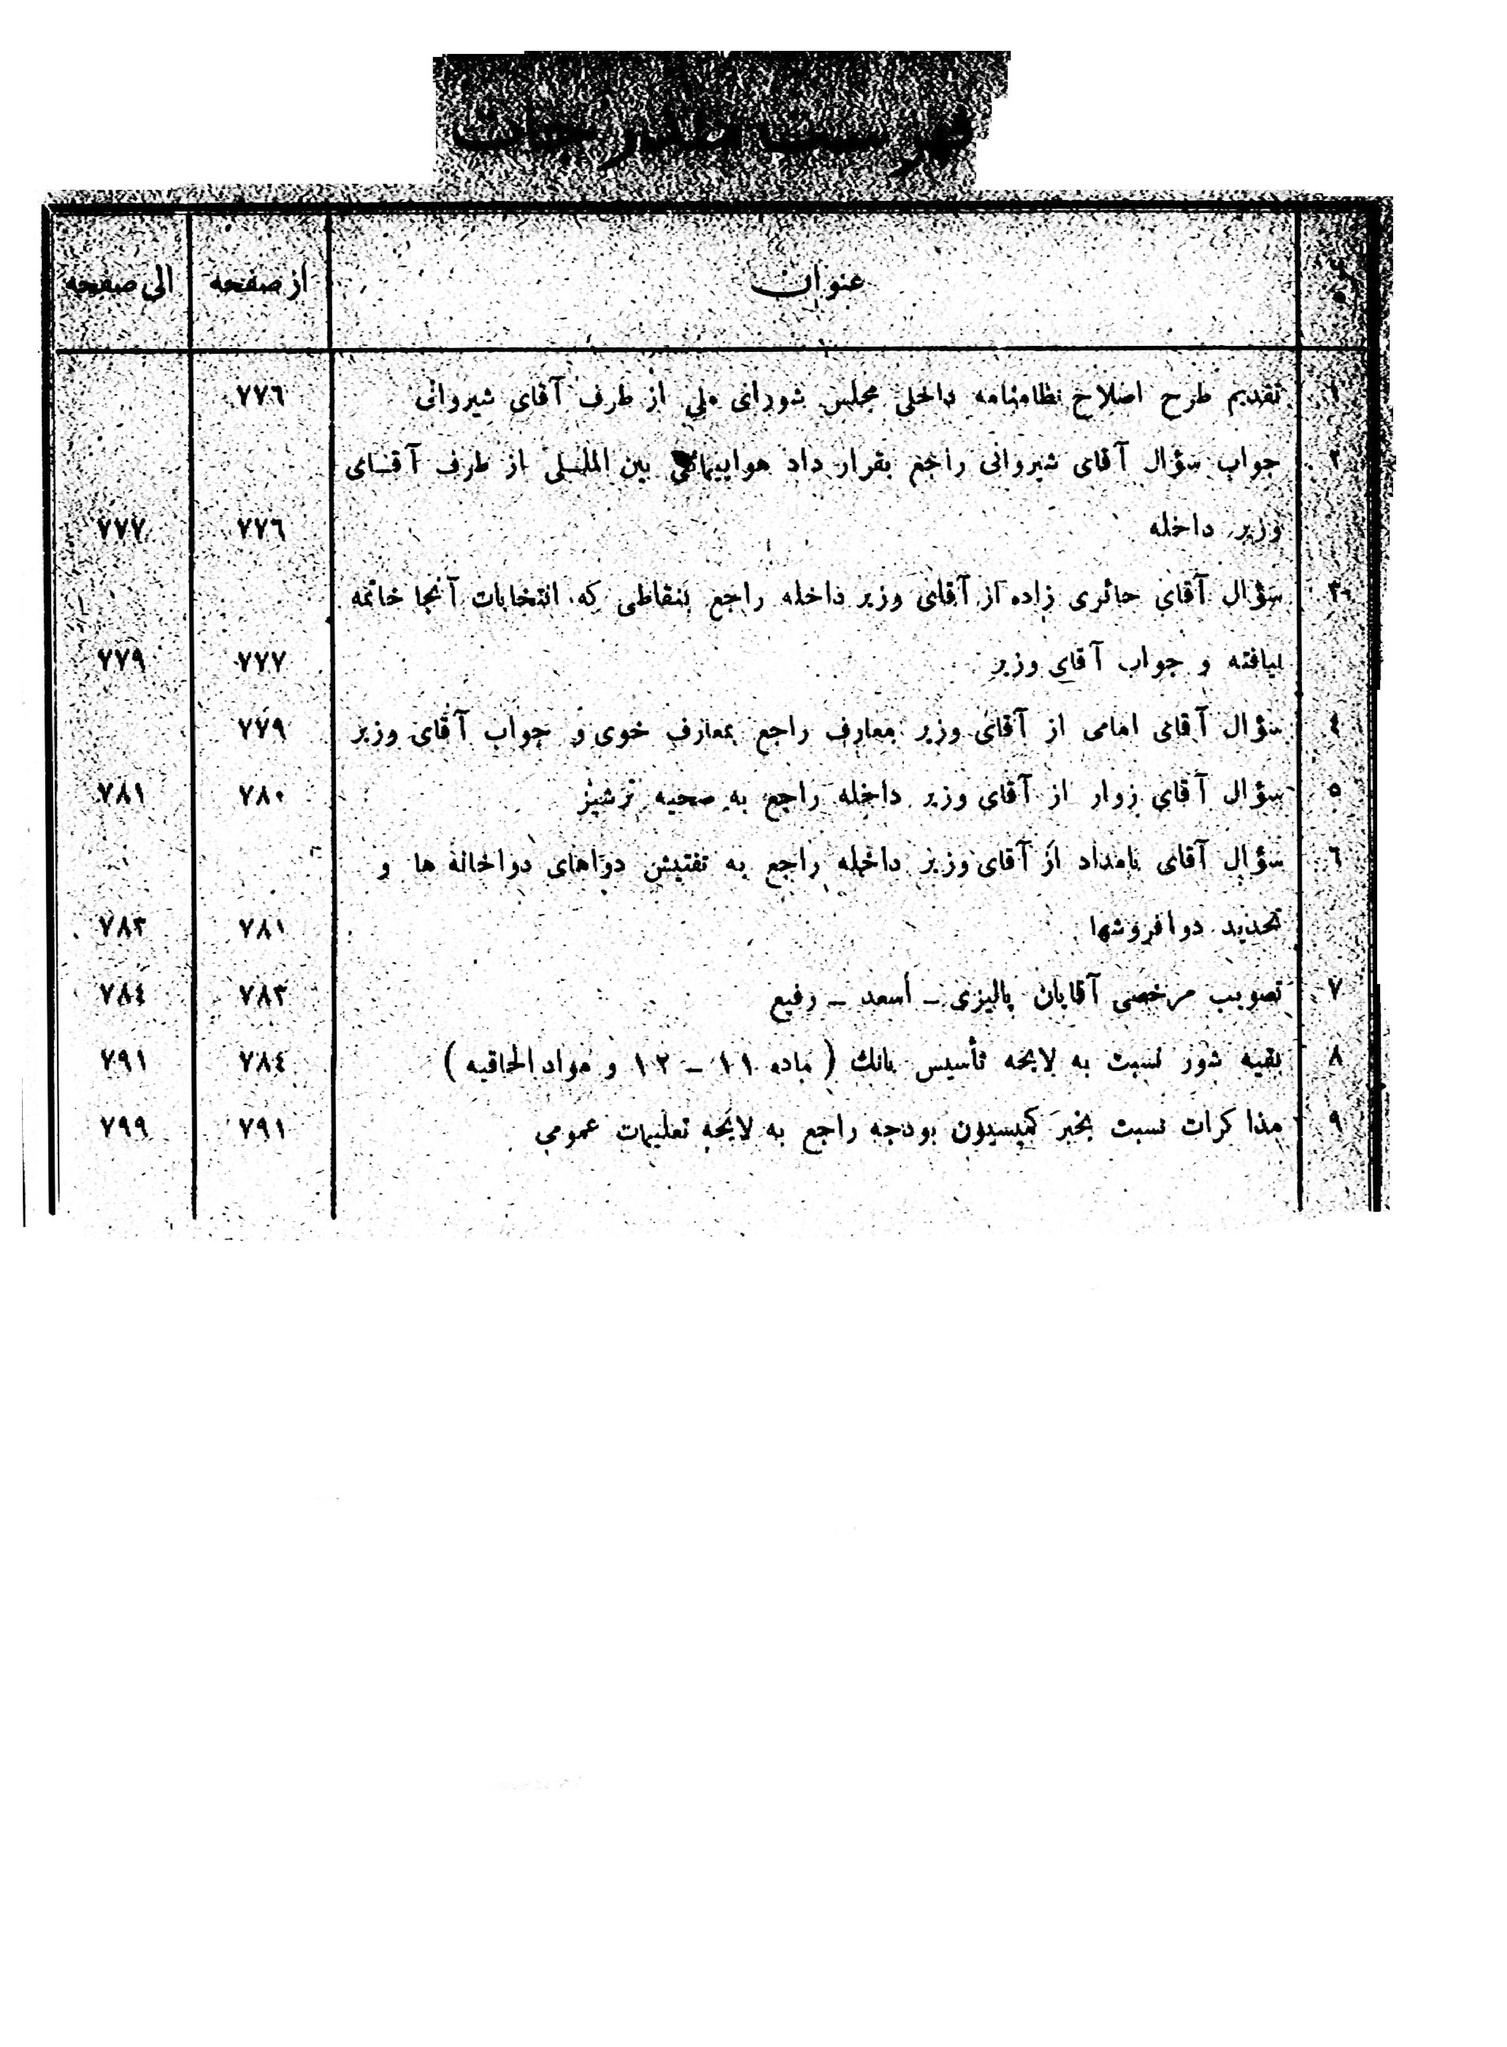 فهرست مندرجات
نمره عنوان از صفحه الی صفحه
۱ تقدیم طرح اصلاح نظامنامه داخلی مجلس شورای ملی از طرف آقای شیروانی ۷۷٦
۲ جواب سؤال آقای شیروانی راجع بقرار داد هواپیمائی بین المللی از طرف آقای
وزیر داخله ۷۷٦ ۷۷۷
۳ سؤال آقای حائری زاده از آقای وزیر داخله راجع بنقاطی که انتخابات آنجا خاتمه
نیافته و جواب آقای وزیر ۷۷۷ ۷۷۹
٤ سؤال آقای امامی از آقای وزیر معارف راجع بمعارف خوی و جواب آقای وزیر ۷۷۹
٥ سؤال آقای زوار از آقای وزیر داخله راجع به صحیه ترشیز ۷۸۰ ۷۸۱
٦ سؤال آقای بامداد از آقای وزیر داخله راجع به تفتیش دواهای دواخانه ها و
تحدید دوافروشها ۷۸۱ ۷۸۳
۷ تصویب مرخصی آقایان پالیزی ـ أسعد ـ رفیع ۷۸۳ ۷۸٤
۸ بقیه شور نسبت به لایحه تأسیس بانك ( ماده ۱۱ ـ ۱۲ و مواد الحاقیه ) ۷۸٤ ۷۹۱
۹ مذاکرات نسبت بخبر کمیسیون بودجه راجع به لایحه تعلیمات عمومی ۷۹۱ ۷۹۹